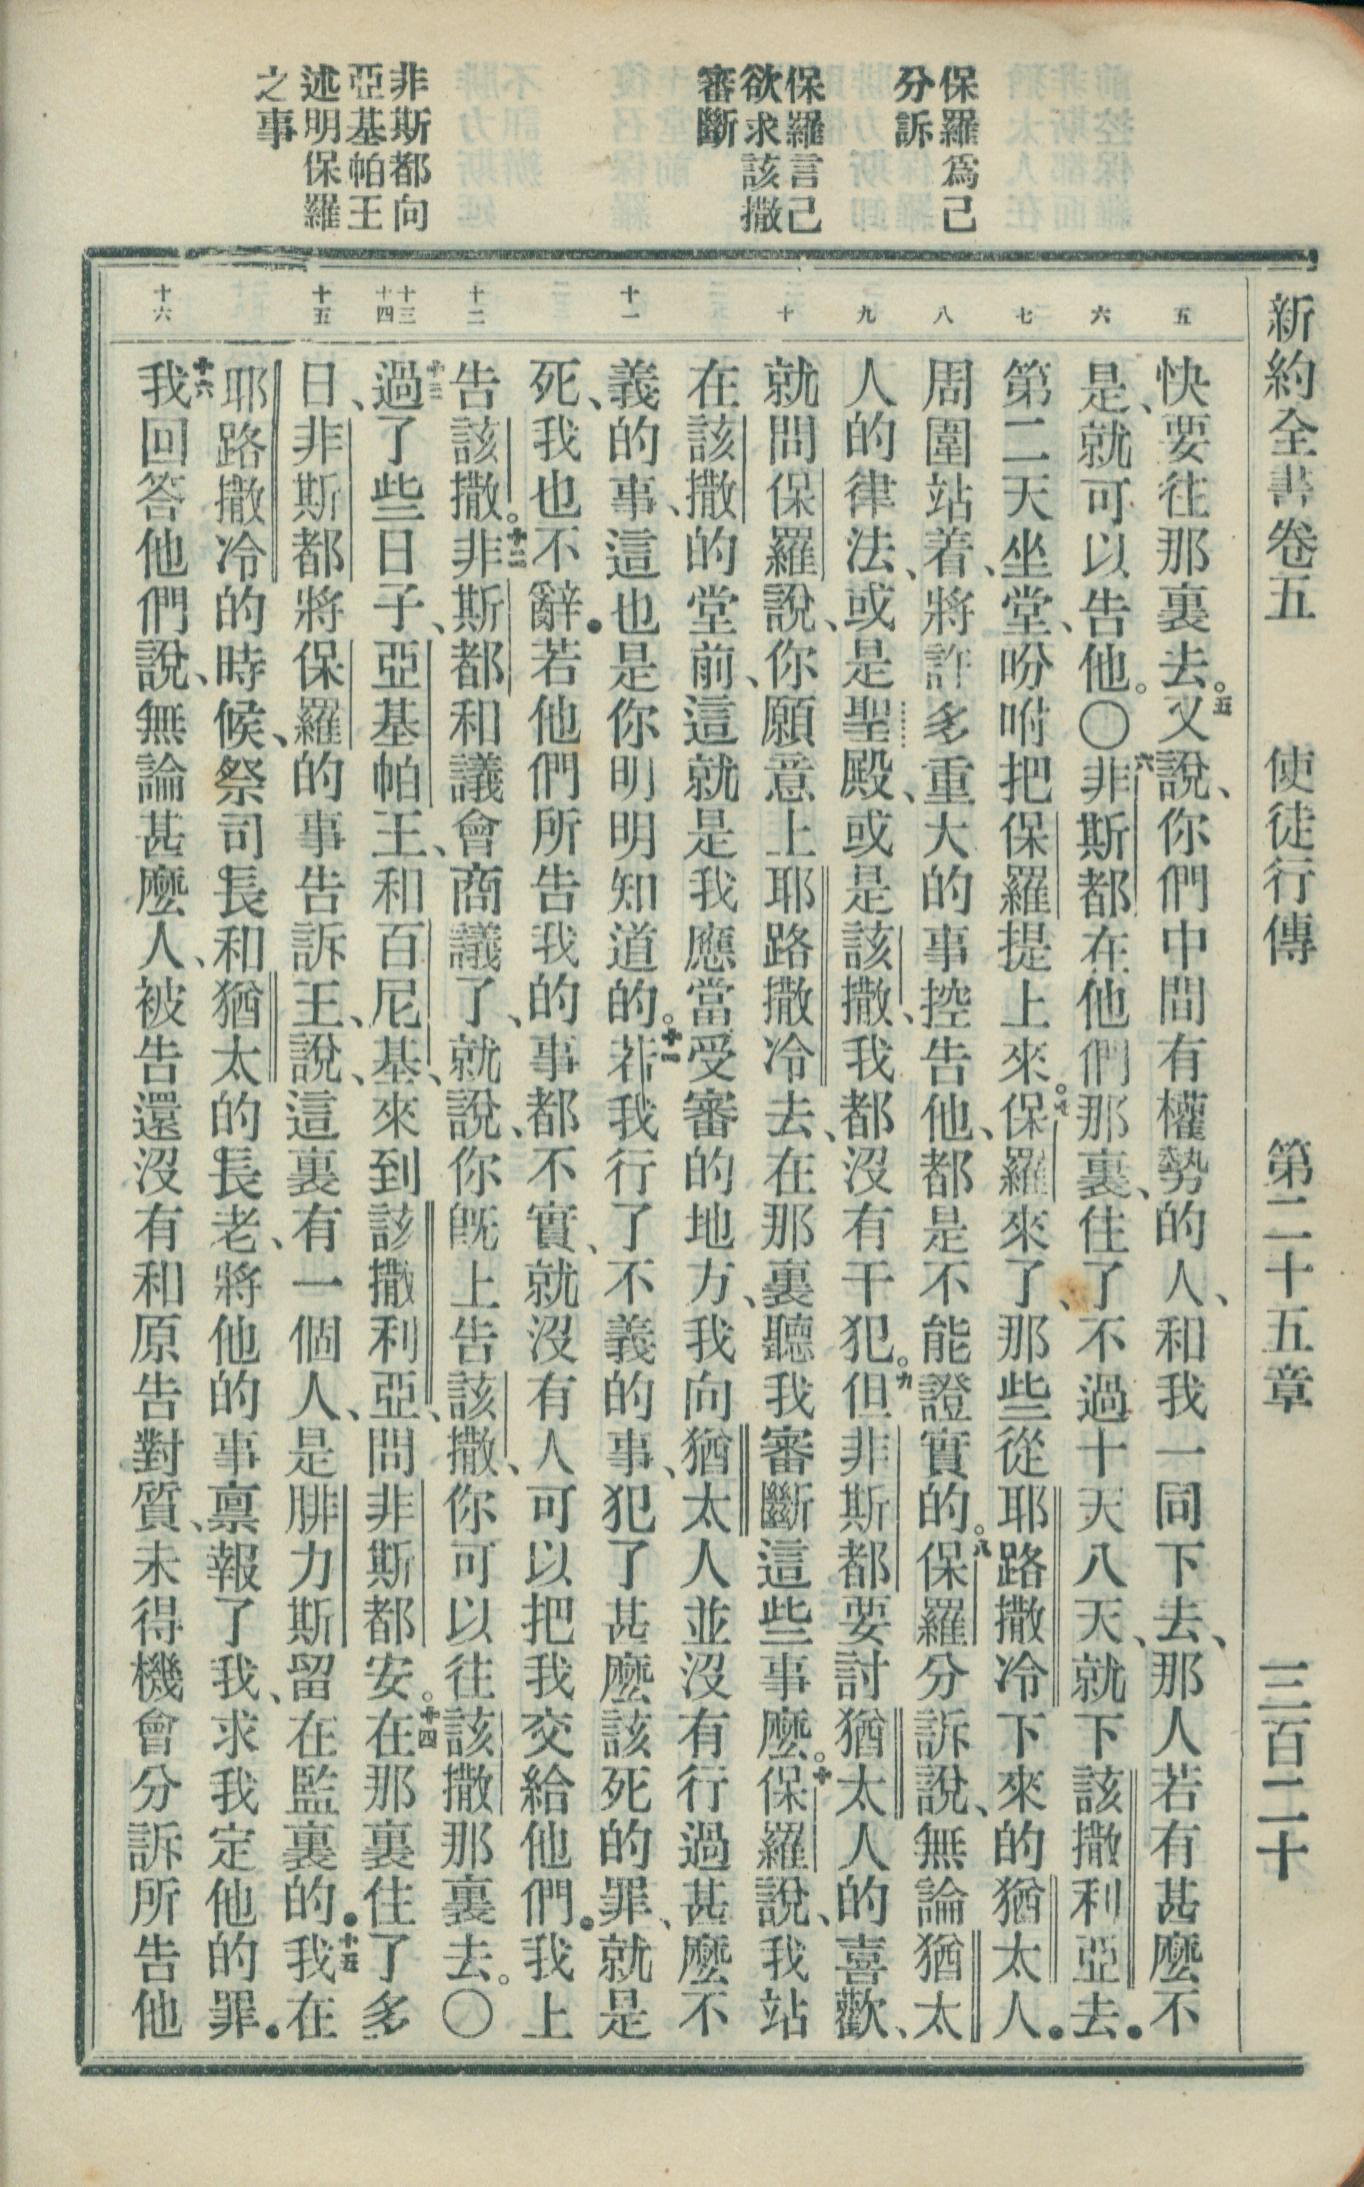 新約全書卷五　使徒行傳　第二十五章　三百二十
保羅爲己
分訴
保羅言己
欲求該撒
審斷
非斯都向
亞基帕王
述明保羅
之事
五 六 七 八 九 十 十一 十二 十三 十四 十五 十六
快要往那裏去。五又說、你們中間有權勢的人、和我一同下去、那人若有甚麼不
是、就可以告他。〇六非斯都在他們那裏、住了不過十天八天、就下該撒利亞去.
第二天坐堂、吩咐把保羅提上來。七保羅來了、那些從耶路撒冷下來的猶太人.
周圍站着、將許多重大的事控告他、都是不能證實的。八保羅分訴說、無論猶太
人的律法、或是聖殿、或是該撒、我都沒有干犯。九但非斯都要討猶太人的喜歡、
就問保羅說、你願意上耶路撒冷去、在那裏聽我審斷這些事麼。十保羅說、我站
在該撒的堂前、這就是我應當受審的地方、我向猶太人並沒有行過甚麼不
義的事、這也是你明明知道的。十一若我行了不義的事、犯了甚麼該死的罪、就是
死、我也不辭.若他們所告我的事都不實、就沒有人可以把我交給他們.我上
告該撒。十二非斯都和議會商議了、就說、你旣上告該撒、你可以往該撒那裏去。〇
十三過了些日子、亞基帕王、和百尼基、來到該撒利亞、問非斯都安。十四在那裏住了多
日、非斯都將保羅的事告訴王、說、這裏有一個人、是腓力斯留在監裏的.十五我在
耶路撒冷的時候、祭司長和猶太的長老、將他的事禀報了我、求我定他的罪.
十六我回答他們說、無論甚麼人、被告還沒有和原告對質、未得機會分訴所告他